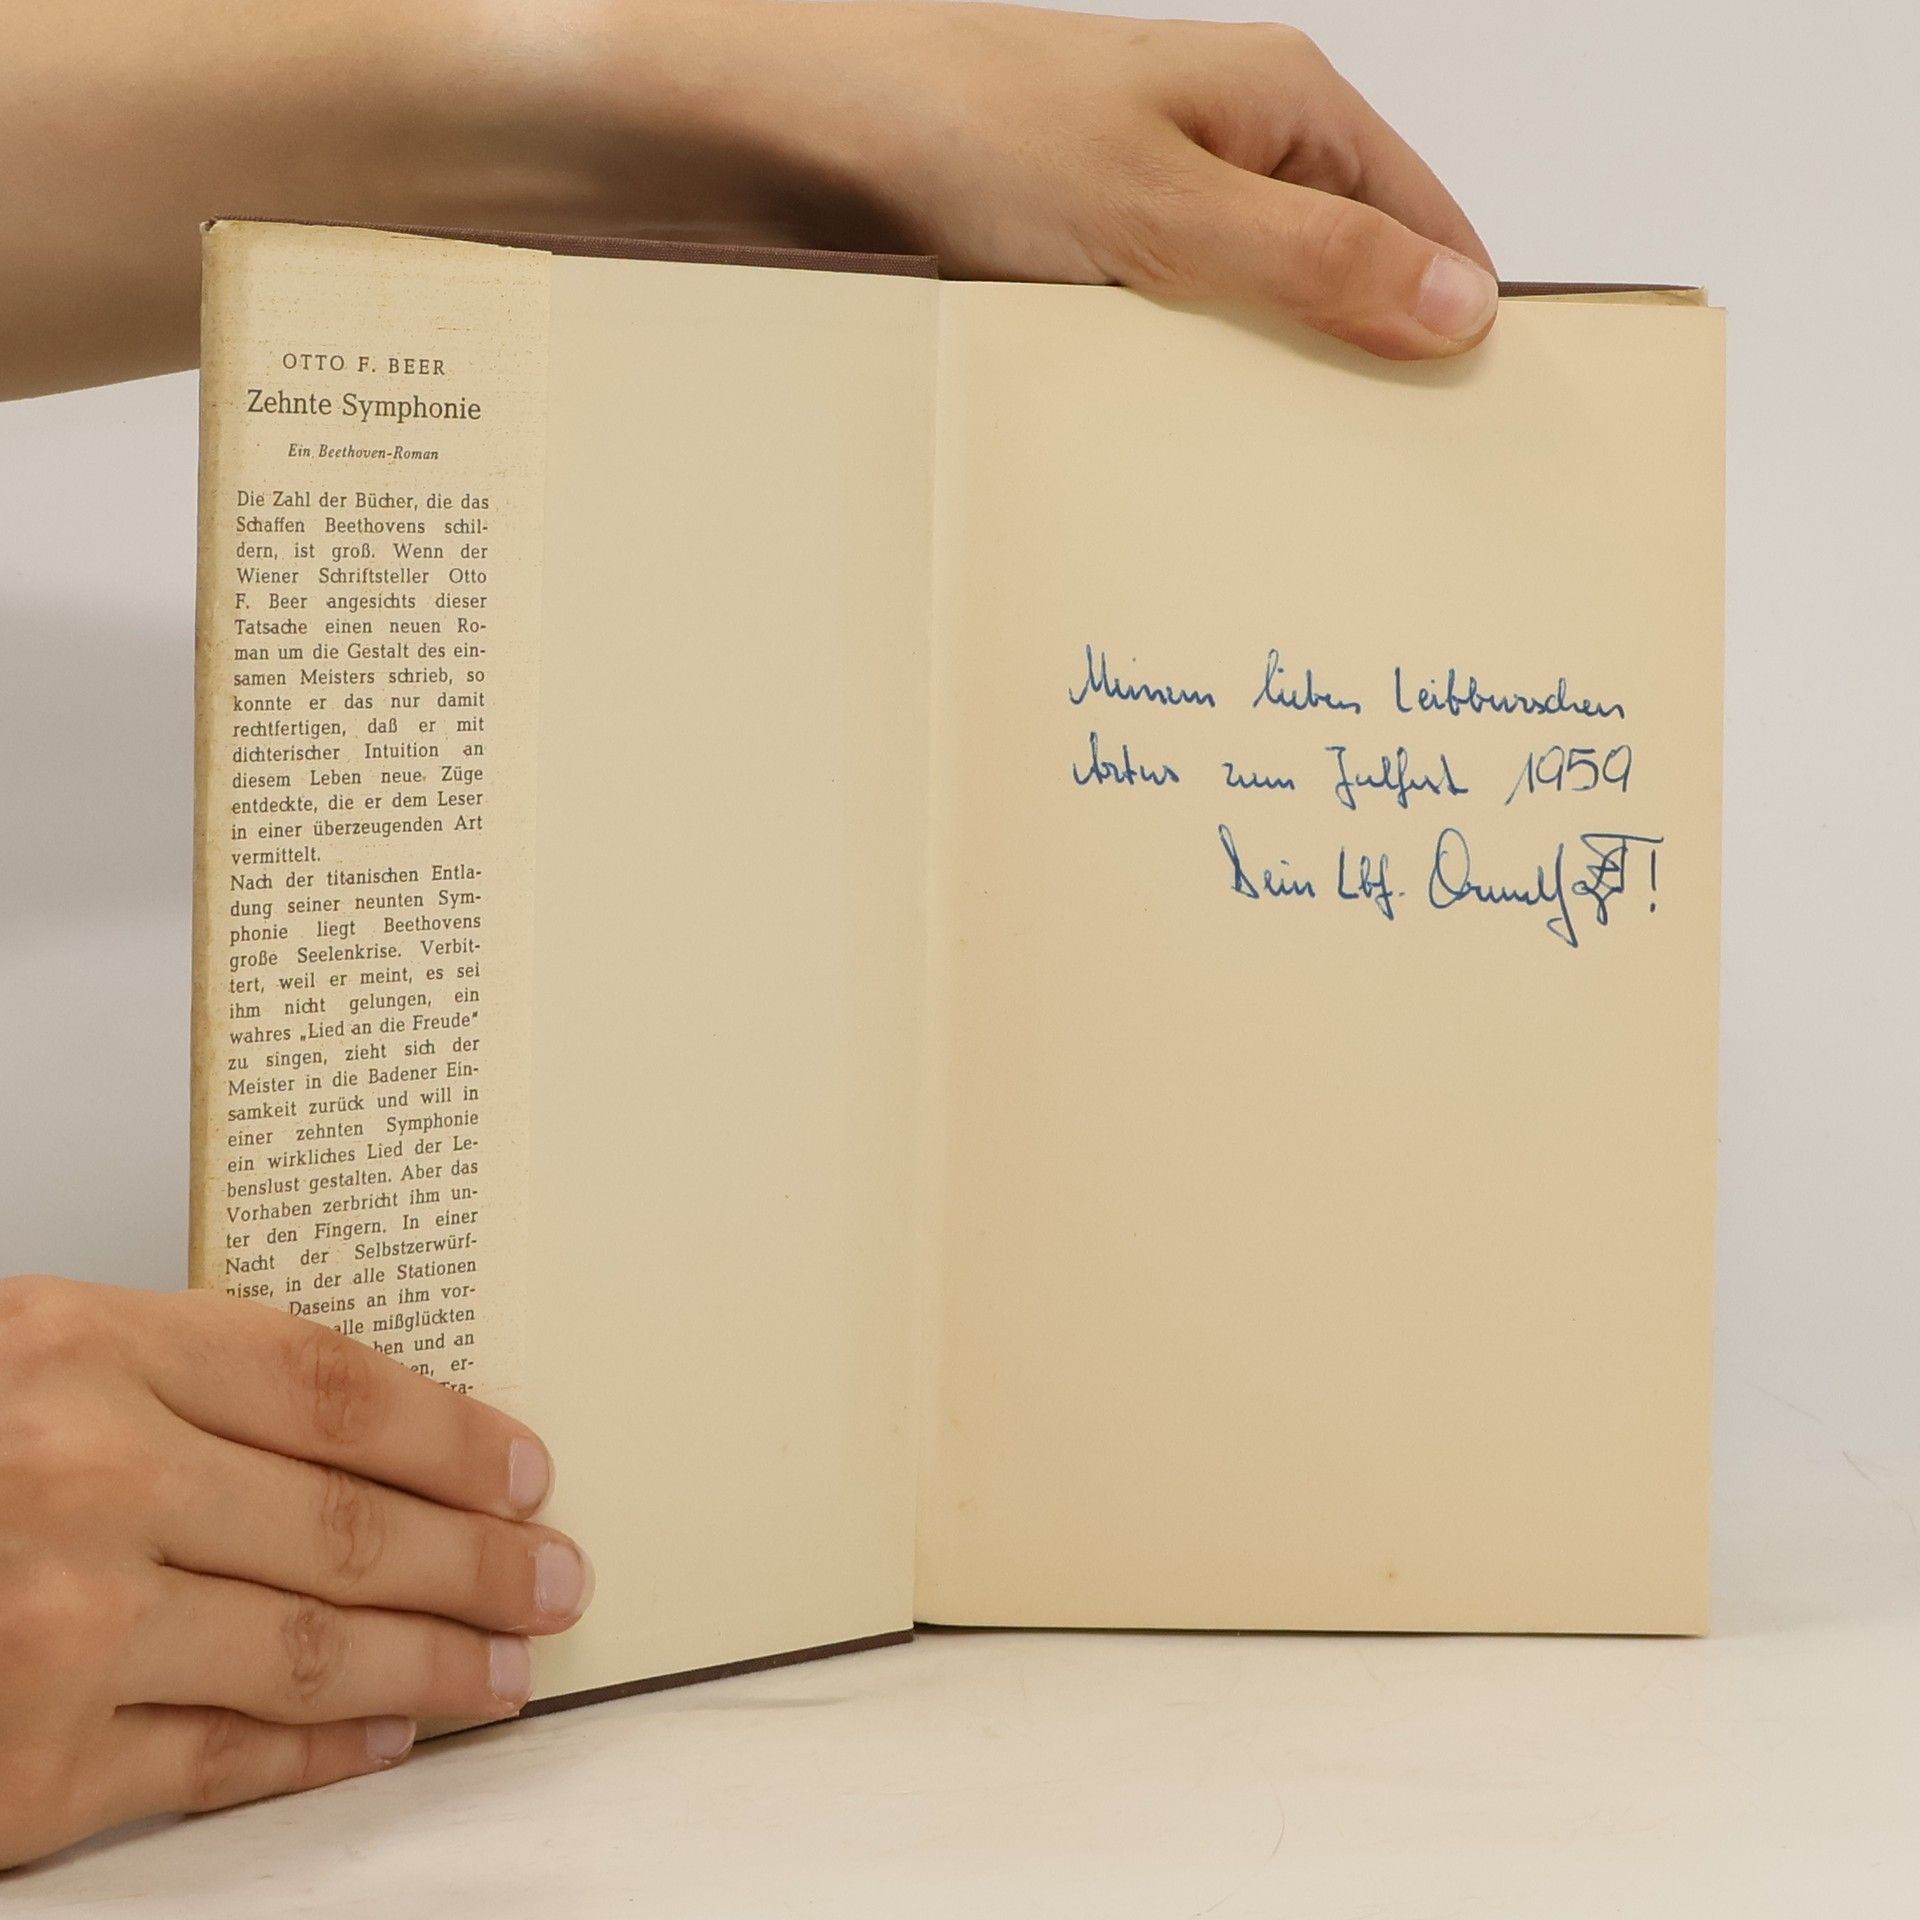 OTTO F. BEER
Zehnte Symphonie
Ein Beethoven-Roman
Die Zahl der Bücher, die das
Schaffen Beethovens schil-
dern, ist groß. Wenn der
Wiener Schriftsteller Otto
F. Beer angesichts dieser
Tatsache einen neuen Ro-
man um die Gestalt des ein-
samen Meisters schrieb, so
konnte er das nur damit
rechtfertigen, daß er mit
dichterischer Intuition an
diesem Leben neue Züge
entdeckte, die er dem Leser
in einer überzeugenden Art
vermittelt.
Nach der titanischen Entla-
dung seiner neunten Sym-
phonie liegt Beethovens
große Seelenkrise. Verbit-
tert, weil er meint, es sei
ihm nicht gelungen, ein
wahres „Lied an die Freude“
zu singen, zieht sich der
Meister in die Badener Ein-
samkeit zurück und will in
einer zehnten Symphonie
ein wirkliches Lied der Le-
benslust gestalten. Aber das
Vorhaben zerbricht ihm un-
ter den Fingern. In einer
Nacht der Selbstzerwürf-
nisse, in der alle Stationen
Daseins an ihm vor-
alle mißglückten
und an
er-
Meinem lieben Leibburschen
Artus zum Julfest 1959
Dein Lbf.